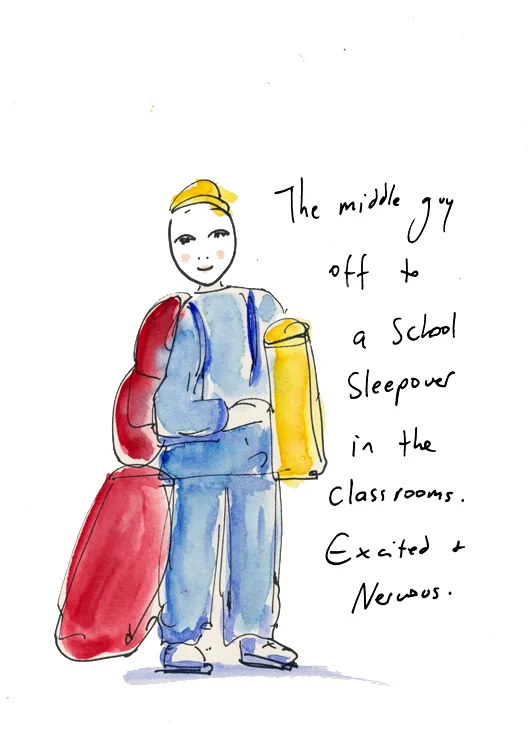 The middle guy
off to
a School
Sleepover
in the
classrooms.
Excited +
Nervous.